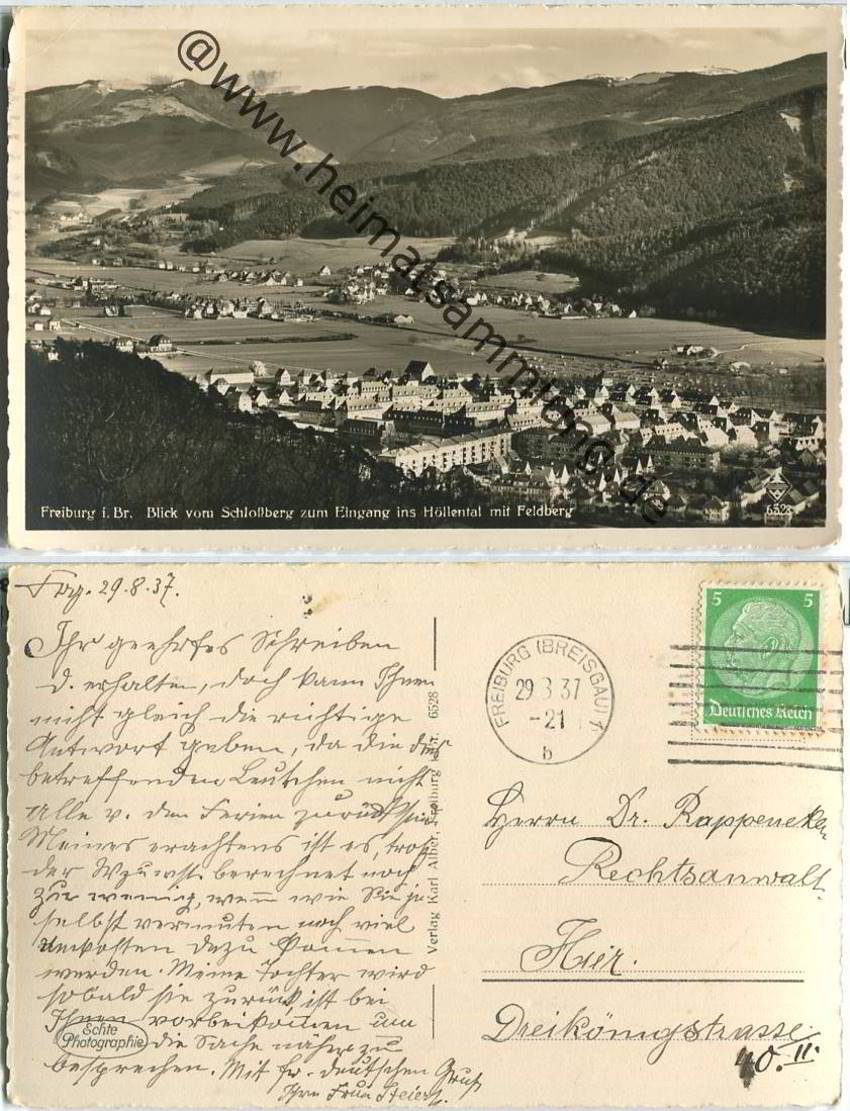 @www.heimatsammlung.de
Freiburg i. Br. Blick vom Schloßberg zum Eingang ins Höllental mit Feldberg
6528
Frbg. 29.8.37.
Ihr geehrtes Schreiben
d. erhalten, doch kann Ihnen
nicht gleich die richtige
Antwort geben, da die dies
betreffenden Leutchen nicht
alle v. den Ferien zurück sind
Meines erachtens ist es, trotz
der berechnet noch
zu wenig, wenn wie Sie ja
selbst vermuten noch viel
Unkosten dazu kommen
werden. Meine Tochter wird
sobald sie zurück ist bei
Ihnen vorbeikommen um
die Sache näher zu
besprechen. Mit fr. deutschen Gruß
Ihre Frau Steiert.
Echte
Photographie
Verlag Karl Alber, Freiburg 6528
FREIBURG (BREISGAU)
29 8 37
-21
b
5 5
Deutsches Reich
Herrn Dr. Rappenecker
Rechtsanwalt.
Hier.
Dreikönigstrasse
40. II.